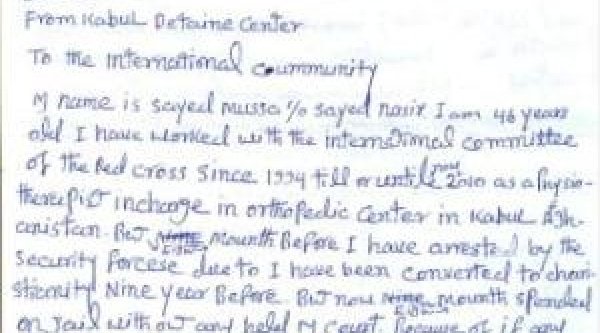 From Kabul Detaine Center
To the international coummunity
M name is sayed mussa s/o sayed nasir I am 46 years
old I have worked with the international committee
of the Red cross since 1994 till or until 2010 as a Physio-
therepist incharge in orthopedic Center in Kabul Afgh-
anistan. But Eight mounth Before I have arrested by the
security forcese due to I have been converted to chari-
stianity Nine year Before. But now Eight mounth spended
on Jail with out any held M Court. Because of if any